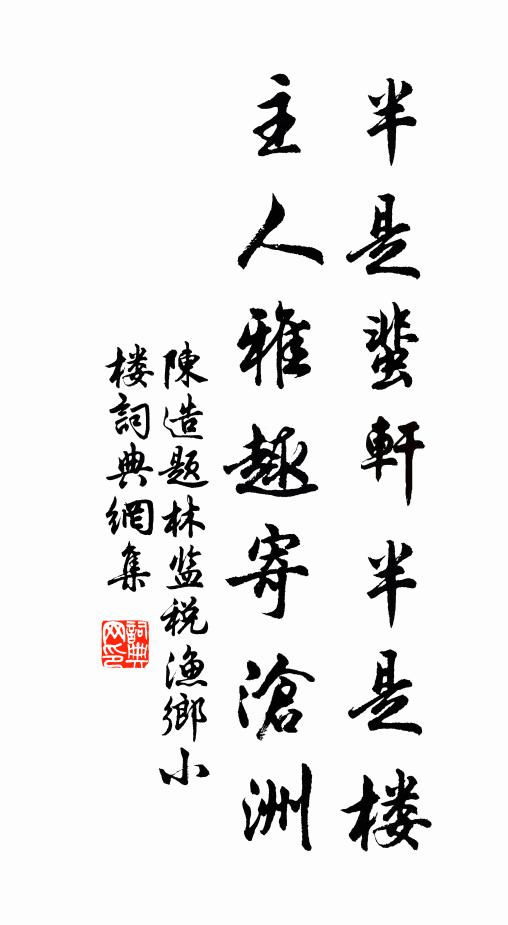 半是蜚軒半是楼
主人雅趣寄滄洲
陳造题林监税漁鄉小
楼詞典網集
詞典网印